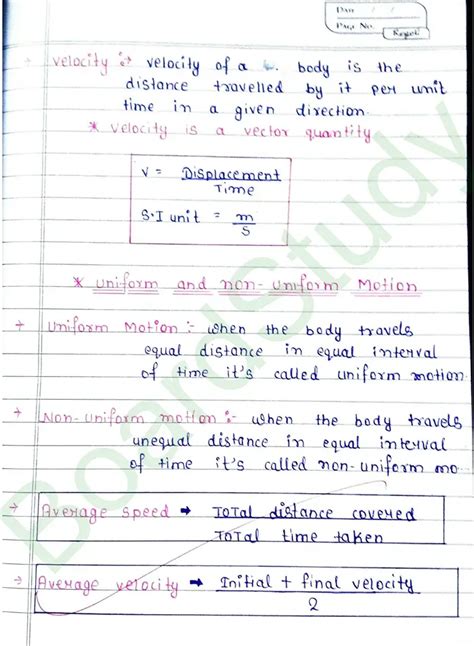 DATE / /
PAGE No.
→ Velocity :→ velocity of a body is the
distance travelled by it per unit
time in a given direction.
* velocity is a vector quantity
V = Displacement
Time
S.I unit = m
s
* uniform and non-uniform Motion
→ Uniform Motion :- when the body travels
equal distance in equal interval
of time it's called uniform motion
→ Non-uniform motion :- when the body travels
unequal distance in equal interval
of time it's called non-uniform mo
→ Average speed → Total distance covered
Total time taken
→ Average velocity → Initial + final velocity
2
BoardStudy